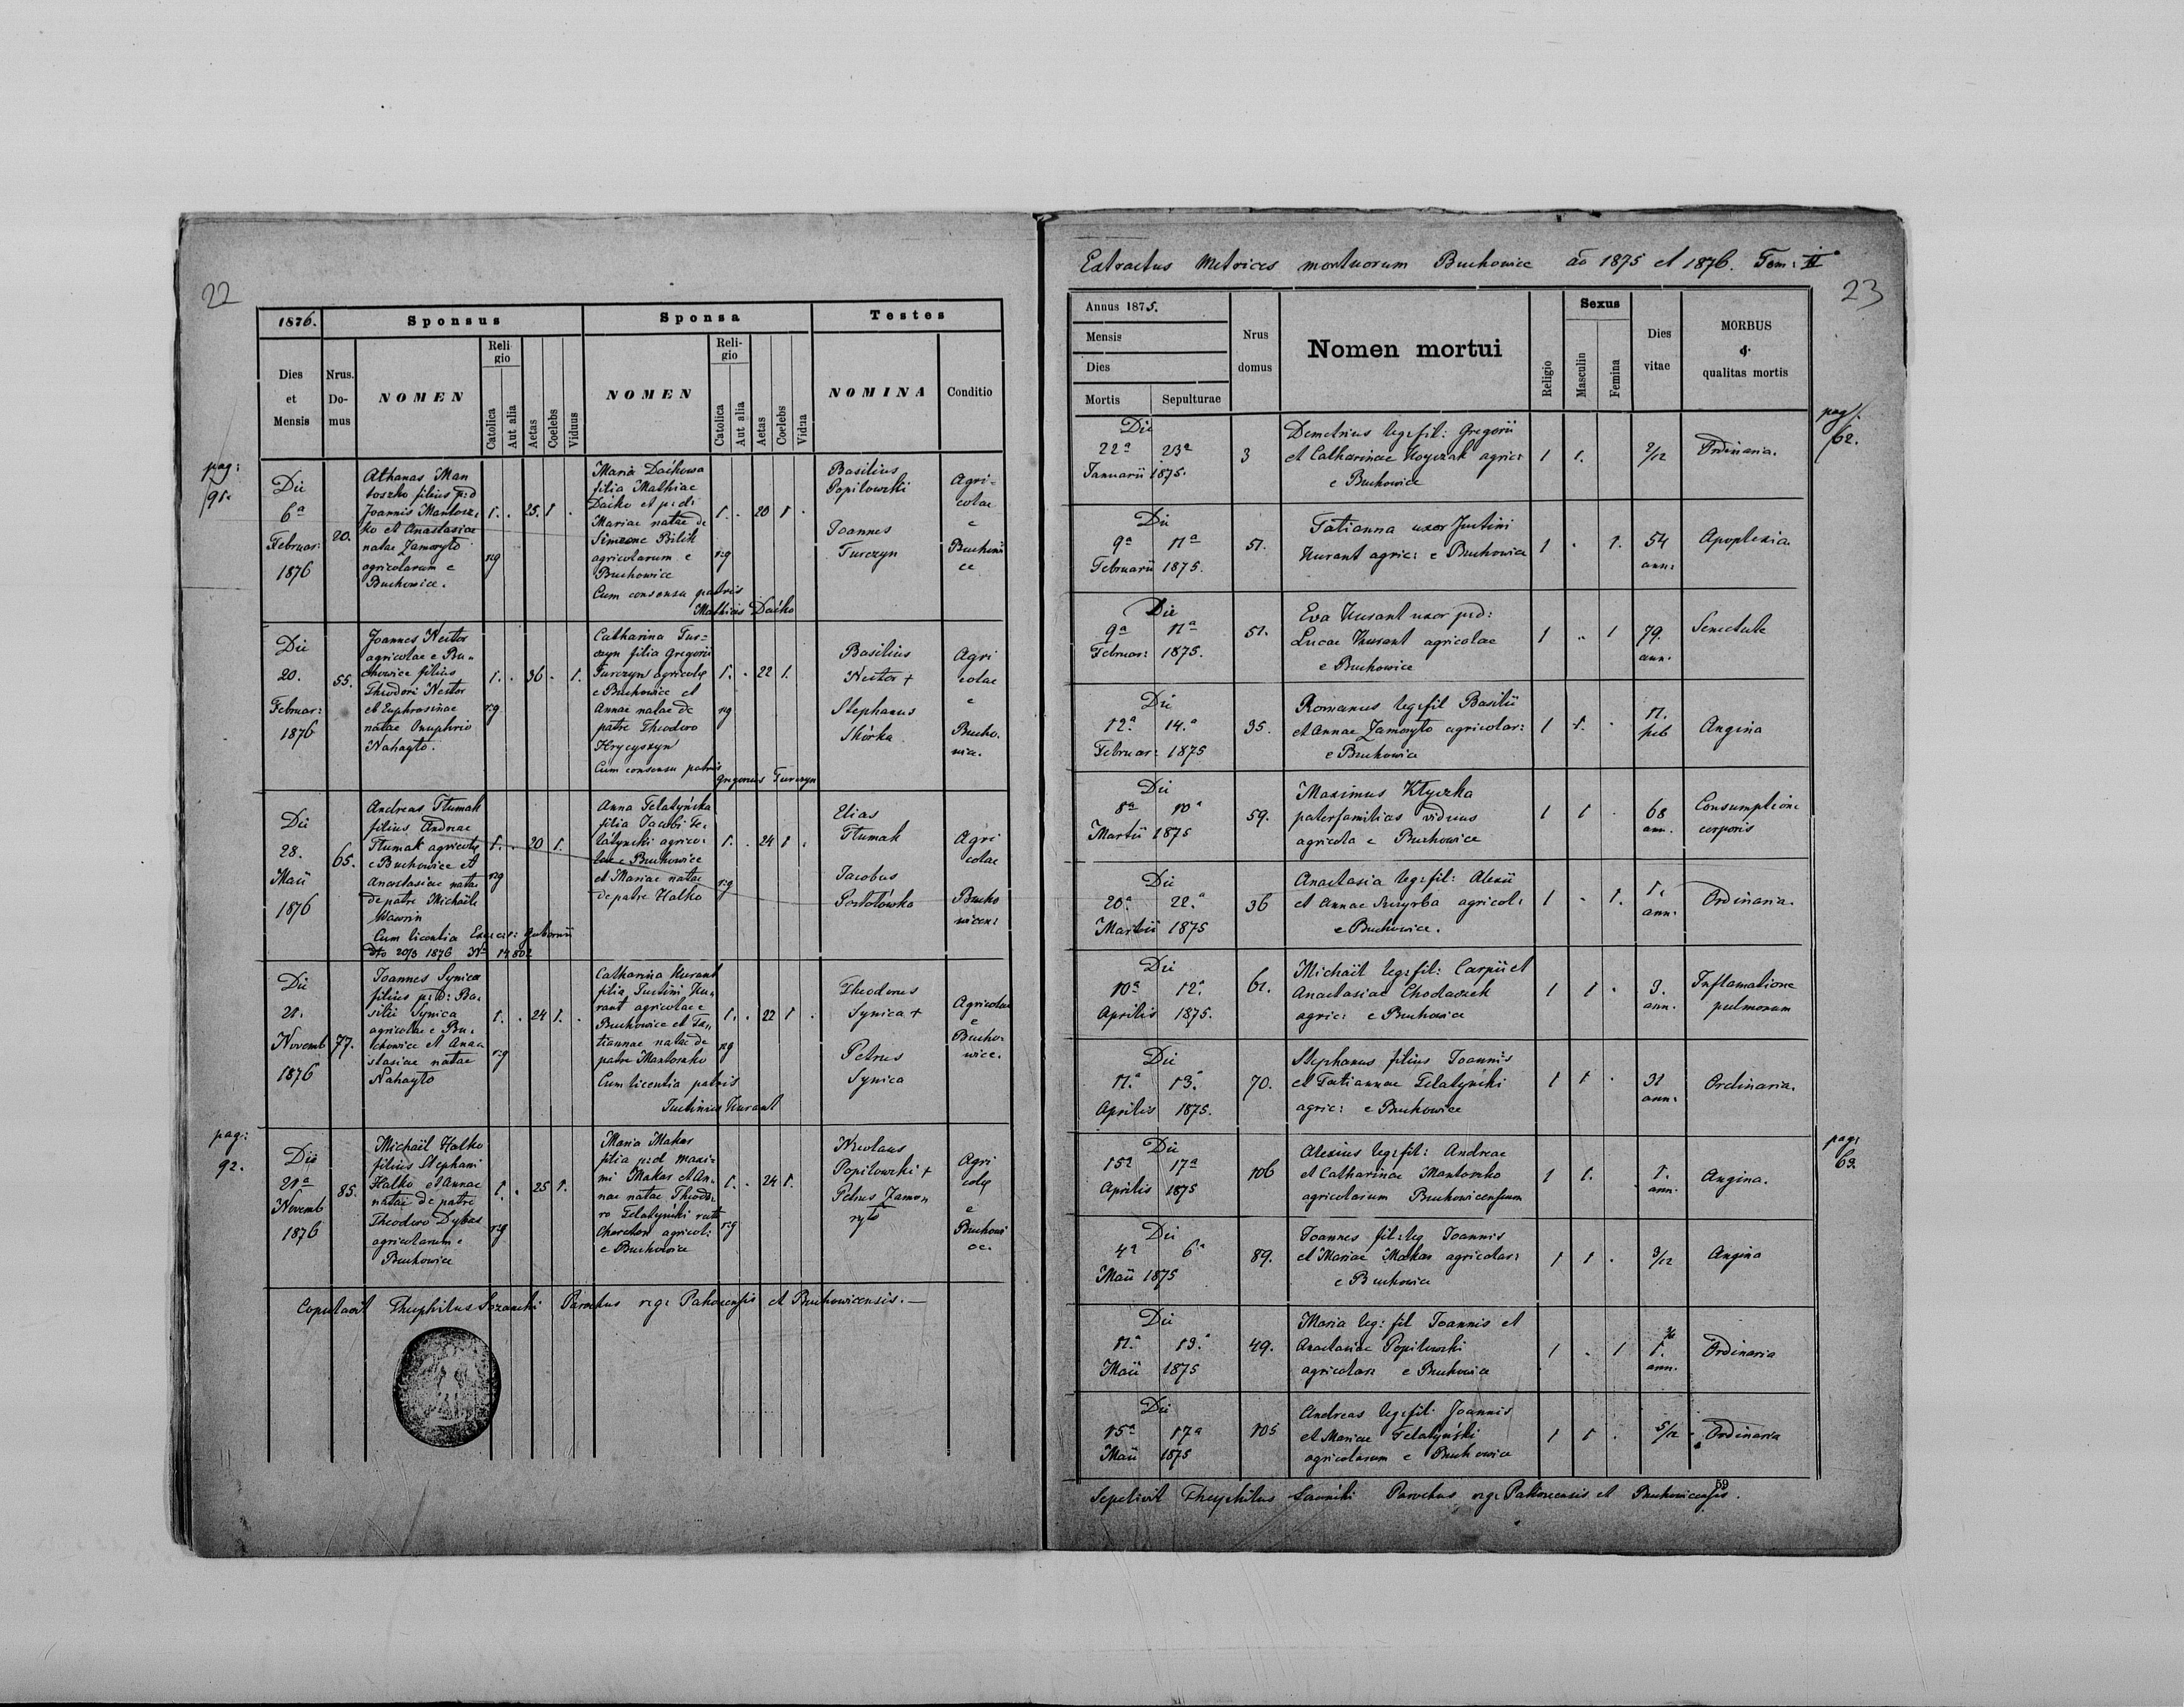 22
1876.
Sponsus
Sponsa
Testes
Dies et Mensis
Nrus. Do- mus
NOMEN
Reli- gio
Catolica
Aut alia
Aetas
Coelebs
Viduus
NOMEN
Reli- gio
Catolica
Aut alia
Aetas
Coelebs
Vidua
NOMINA
Conditio
pag:
91.
Die
6a
Februar:
1876
20.
Athanas Man
toszko filius p:d
Joannis Mantosz:
ko et Anastasiae
natae Zamoryto
agricolarum e
Buchowice.
1. . 25. 1 .
rg
Maria Daćkowa
filia Mathiae
Daćko et p: d:
Mariae natae de
Simeone Bilik
agricolarum e
Buchowice
Cum consensu patris
Mathias Daćko
1. . 20 1 .
rg
Basilius
Popilowski
Joannes
Turczyn
Agri-
colae
e
Buchowi
ce
Die
20.
Februar:
1876
55.
Joannes Nestor
agricolae e Bu-
chowice filius
Theodori Nestor
et Euphrosinae
natae Onuphrio
Nahayto.
1. . 36 . 1.
rg
Catharina Tur-
czyn filia Gregorii
Turczyn agricolę
e Buchowice et
Annae natae de
patre Theodoro
Hrycyszyn
Cum consensu patris
Gregorius Turczyn
1. . 22 1.
rg
Basilius
Nestor +
Stephanus
Skórka
Agri
colae
e
Bucho.
wice.
Die
28.
Maii
1876
65.
Andreas Tłumak
filius Andreae
Tłumak agricolę
e Buchowice et
Anastasiae natae
de patre Michaële
Wawrin
Cum licentia Excels: Gubernii
dto 20/3 1876 No 14802
1. . 20 1.
rg
Anna Telatyńska
filia Jacobi Te-
latynski agrico-
lae e Buchowice
et Mariae natae
de patre Halko
1. . 24 1 .
rg
Elias
Tłumak
Jacobus
Postołówka
Agri
colae
Bucho
wicen:
Die
21.
Novemb
1876
77.
Joannes Synica
filius p: d: Ba-
silii Synica
agricolae e Bu-
chowice et Ana-
stasiae natae
Nahayto
1. . 24 1. .
rg
Catharina Kurant
filia Justini Ku-
rant agricolae e
Buchowice et Ta-
tiannae natae de
patre Mantoszko
Cum licentia patris
Justinus Kurant
1. . 22 1 .
rg
Theodorus
Synica +
Petrus
Synica
Agricolae
e
Bucho-
wice.
pag:
92.
Die
21a
Novemb
1876
85.
Michaël Halko
filius Stephani
Halko et Annae
natae de patre
Theodoro Dybas
agricolarum e
Buchowice
1. . 25 1.
rg
Maria Makar
filia p:d Maxi-
mi Makar et An-
nae natae Theodo-
ro Telatyński
agricol:
e Buchowice
1. . 24 1.
rg
Nicolaus
Popilowski +
Petrus Zamo
ryto
Agri
colę
e
Buchowi
ce.
Copulavit Theophilus Parochus rg: Pakoscensis et Buchowicensis.—
Extractus Metrices mortuorum Buchowice ao 1875 et 1876. Tom: II
23
Annus 1875.
Mensis
Dies
Mortis
Sepulturae
Nrus domus
Nomen mortui
Religio
Sexus
Masculin
Femina
Dies vitae
MORBUS
&
qualitas mortis
pag:
62.
Die
22a 23a
Januarii 1875.
3
Demetrius leg: fil: Gregorii
et Catharinae Koyczak agric:
e Buchowice
1 1.
2/12
Ordinaria.
Die
9a 11a
Februarii 1875.
51.
Tatianna uxor Justini
Kurant agric: e Buchowice
1 . 1.
54
ann:
Apoplexia
Die
9a 11a
Februar: 1875.
51.
Eva Kurant uxor p:d:
Lucae Kurant agricolae
e Buchowice
1 . 1
79.
ann:
Senectute
Die
12.a 14.a
Februar: 1875
35.
Romanus leg: fil Basilii
et Annae Zamoryto agricolar:
e Buchowice
1 1. .
11.
heb
Angina
Die
8a 10a
Martii 1875
59.
Maximus Kłyczka
paterfamilias viduus
agricola e Buchowice
1 1 .
68
ann.
Consumptione
corporis
Die
20.a 22.a
Martii 1875
36
Anastasia leg: fil: Alexii
et Annae agricol:
e Buchowice.
1 . 1.
1.
ann.
Ordinaria.
Die
10a 12.a
Aprilis 1875.
61.
Michaël leg: fil: Carpii et
Anastasiae Chodaczek
agric: e Buchowice
1 1 .
3.
ann.
Inflamatione
pulmonum
Die
11.a 13.a
Aprilis 1875.
70.
Stephanus filius Joannis
et Tatiannae Telatyński
agric: e Buchowice
1 1 .
31
ann.
Ordinaria.
pag:
63.
Die
15a 17a
Aprilis 1875
106
Alexius leg: fil: Andreae
et Catharinae Mantoszko
agricolarum Buchowicensium
1 1.
1.
ann.
Angina.
Die
4a 6a
Maii 1875
89.
Joannes fil: leg Joannis
et Mariae Makar agricolar:
e Buchowice
1 1 .
3/12
Angina
Die
11.a 13.a
Maii 1875
49.
Maria leg: fil Joannis et
Anastasiae Popilowski
agricolar: e Buchowice
1 . 1
1.
ann.
Ordinaria
Die
15a 17a
Maii 1875
105
Andreas leg: fil: Joannis
et Mariae Telatyński
agricolarum e Buchowice
1 1 .
5/12
Ordinaria
59
Sepelivit Theophilus Parochus rg: Pakoscensis et Buchowicensis.